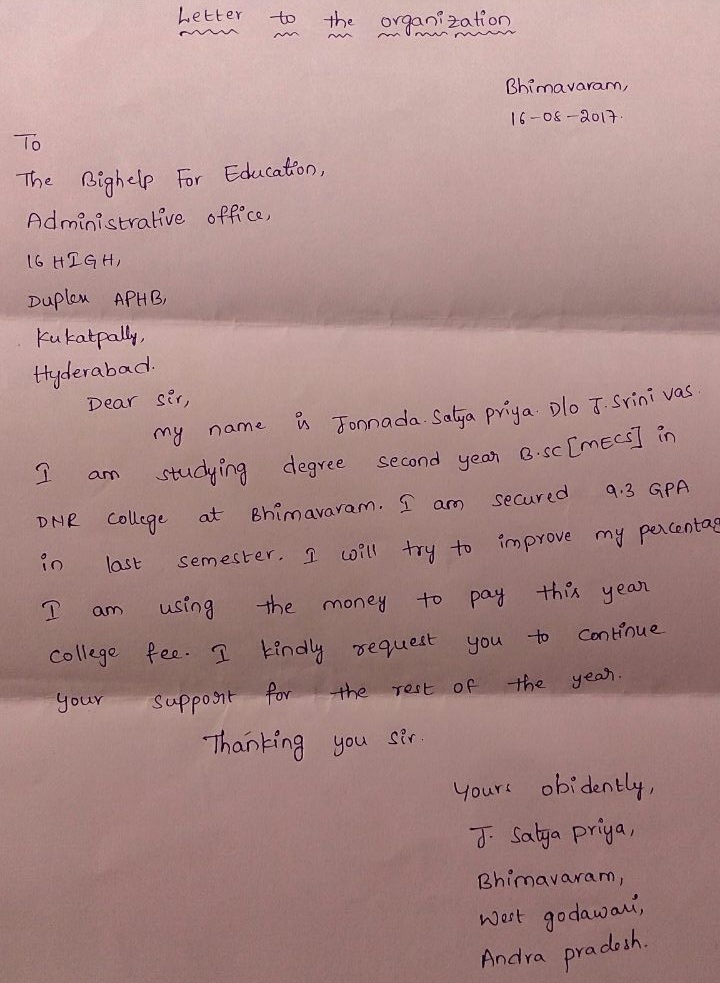 Letter to the organization
Bhimavaram,
16-08-2017.
To
The Bighelp For Education,
Administrative office,
16 HIGH,
Duplex APHB,
Kukatpally,
Hyderabad.
Dear Sir,
my name is Jonnada. Satya priya. D/o J. Srinivas.
I am studying degree second year B.sc [MECS] in
DNR college at Bhimavaram. I am secured 9.3 GPA
in last semester. I will try to improve my percentag
I am using the money to pay this year
college fee. I kindly request you to continue
your support for the rest of the year.
Thanking you Sir.
Yours obidently,
J. Satya priya,
Bhimavaram,
West godawari,
Andra pradesh.